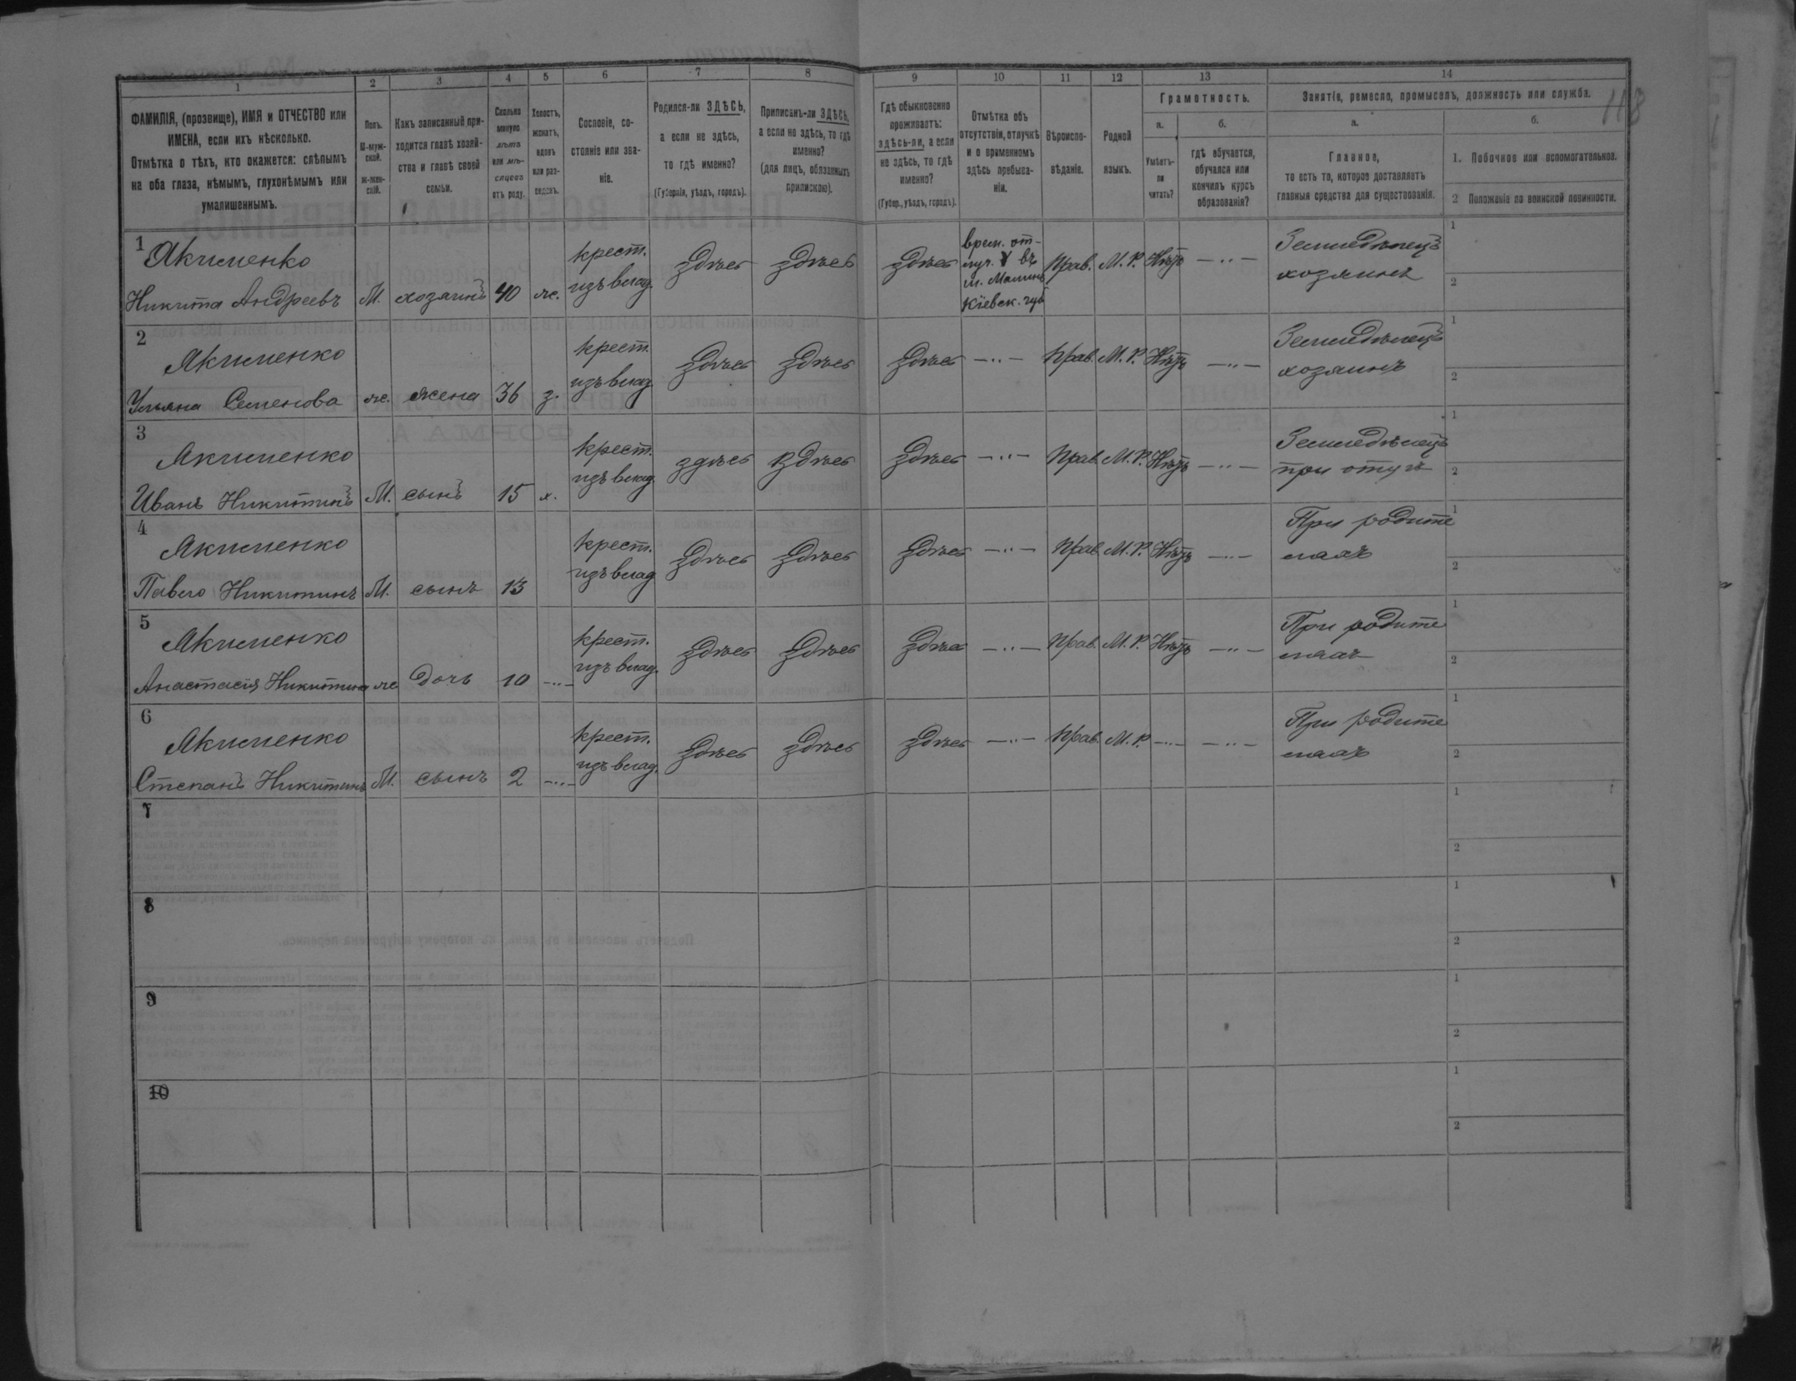 118
1 2 3 4 5 6 7 8 9 10 11 12 13 14
ФАМИЛІЯ, (прозвище), ИМЯ и ОТЧЕСТВО или
ИМЕНА, если ихъ нѣсколько.
Отмѣтка о тѣхъ, кто окажется: слѣпымъ
на оба глаза, нѣмымъ, глухонѣмымъ или
умалишеннымъ.
Полъ.
М-муж-
ской.
Ж-жен-
скій.
Какъ записанный при-
ходится главѣ хозяй-
ства и главѣ своей
семьи.
Сколько
минуло
лѣтъ
или мѣ-
сяцевъ
отъ роду.
Холостъ,
женатъ,
вдовъ
или раз-
веденъ.
Сословіе, со-
стояніе или зва-
ніе.
Родился-ли ЗДѢСЬ,
а если не здѣсь,
то гдѣ именно?
(Губернія, уѣздъ, городъ).
Приписанъ-ли ЗДѢСЬ,
а если не здѣсь, то гдѣ
именно?
(для лицъ, обязанныхъ
припискою).
Гдѣ обыкновенно
проживаетъ:
здѣсь-ли, а если
не здѣсь, то гдѣ
именно?
(Губер., уѣздъ, городъ).
Отмѣтка объ
отсутствіи, отлучкѣ
и о временномъ
здѣсь пребыва-
ніи.
Вѣроиспо-
вѣданіе.
Родной
языкъ.
Грамотность.
а.
Умѣетъ-
ли
читать?
б.
гдѣ обучается,
обучался или
кончилъ курсъ
образованія?
Занятіе, ремесло, промыселъ, должность или служба.
а.
Главное,
то есть то, которое доставляетъ
главныя средства для существованія.
б.
1. Побочное или вспомогательное.
2 Положеніе по воинской повинности.
1 Якименко
Никита Андреевъ М. хозяинъ 40 ж. крест. изъ влад. здѣсь здѣсь здѣсь врем. от-
луч. въ
м. Малинѣ
Кіевск. губ Прав. М. Р. Нѣтъ —„— Земледѣлецъ
хозяинъ 1 2
2 Якименко
Ульяна Семенова ж. жена 36 з. крест. изъ влад. здѣсь здѣсь здѣсь —„— Прав. М. Р. Нѣтъ —„— Земледѣлецъ
хозяинъ 1 2
3 Якименко
Иванъ Никитинъ М. сынъ 15 х. крест. изъ влад. здѣсь здѣсь здѣсь —„— Прав. М. Р. Нѣтъ —„— Земледѣлецъ
при отцѣ 1 2
4 Якименко
Павелъ Никитинъ М. сынъ 13 крест. изъ влад. здѣсь здѣсь здѣсь —„— Прав. М. Р. Нѣтъ —„— При родите
ляхъ 1 2
5 Якименко
Анастасія Никитина ж. дочь 10 —„— крест. изъ влад. здѣсь здѣсь здѣсь —„— Прав. М. Р. Нѣтъ —„— При родите
ляхъ 1 2
6 Якименко
Степанъ Никитинъ М. сынъ 2 —„— крест. изъ влад. здѣсь здѣсь здѣсь —„— Прав. М. Р. —„— —„— При родите
ляхъ 1 2
7 1 2
8 1 2
9 1 2
10 1 2